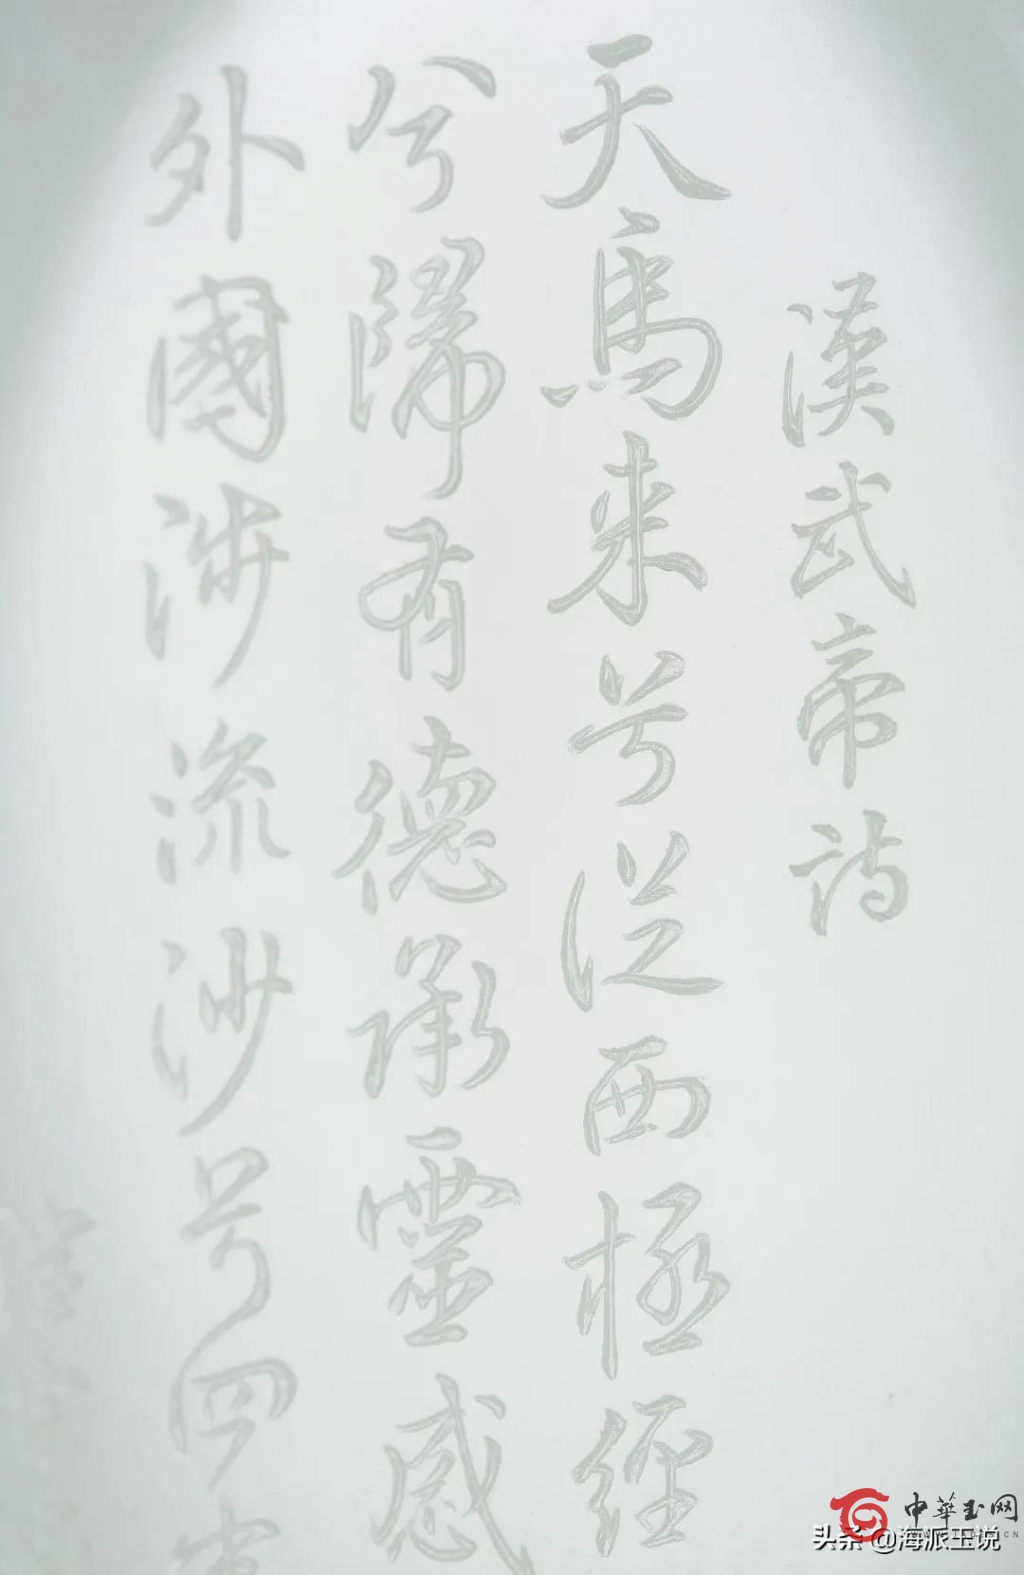 漢武帝詩
天馬来兮從西極經
兮歸有德承靈威
外國涉流沙兮四
中華玉网
头条 @海派玉说